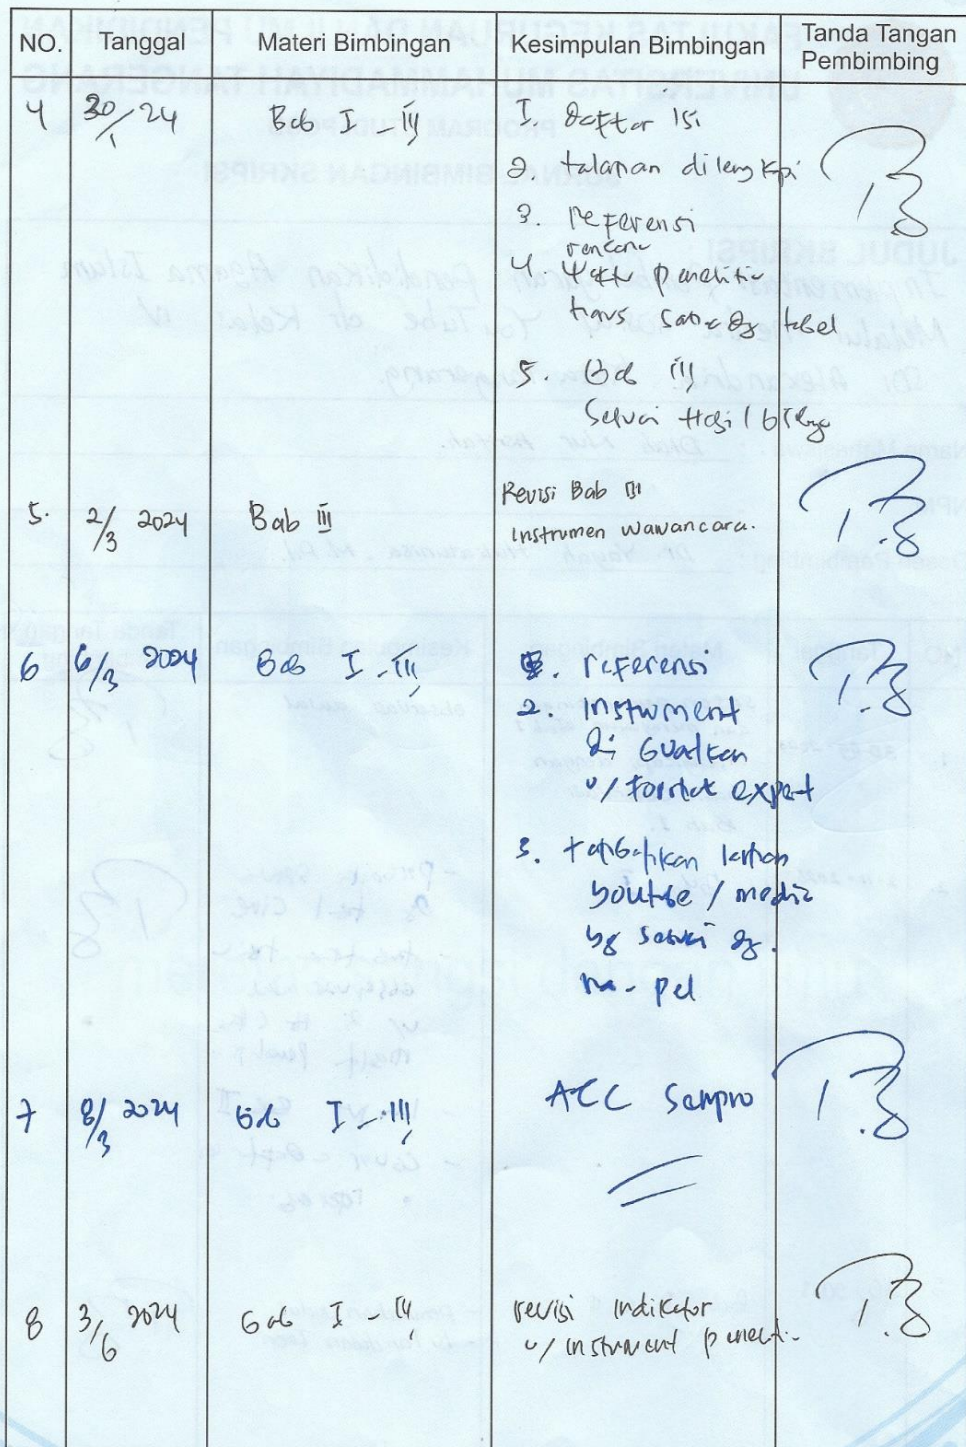 NO. Tanggal Materi Bimbingan Kesimpulan Bimbingan Tanda Tangan Pembimbing
4 30/1 24 Bab I - III 1. Daftar isi
2. talaman dilengkapi
3. referensi
4. rencana
waktu penelitian
harus tabel
5. Bab III
Sesuai Hasil
5. 2/3 2024 Bab III Revisi Bab III
Instrumen wawancara.
6 6/3 2024 Bab I - III 1. referensi
2. Instrument
di buatkan
u/ format expert
3.
youtube / media
yg sesuai dg.
ma-pel
7 8/3 2024 Bab I - III ACC Sempro
8 3/6 2024 Bab I - III revisi indikator
u/ instrument